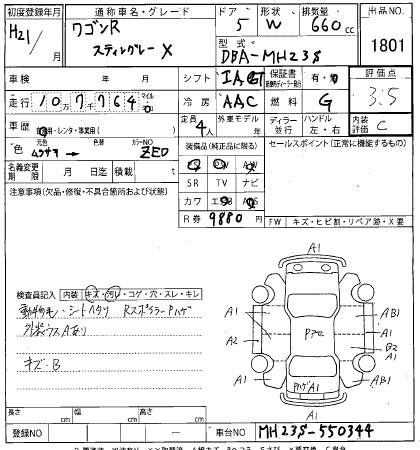 初度登録年月 通称車名・グレード ドア 形状 排気量 出品NO
H21/ ワゴンR 5 W 660cc 1801
スティングレー X 型式 DBA-MH23S
車検 年 月 日 シフト IA 保証書 有・無 評価点
走行 10万7764 マイル 冷房 AAC 燃料 G 3.5
車歴 自家用・レンタ・事業用( ) 定員 4人 外車モデル年 ディーラー 並行 ハンドル 左・右 内装評価 C
元色 ムラサキ 色替 カラーNO ZE0 装備品(純正品に限る) セールスポイント(正常に機能するもの)
名義変更期限 月 日迄 積載 t PS PW AW
注意事項(欠品・修復・不具合箇所および状態) SR TV ナビ
カワ エアB ABS
R券 9880円 FW キズ・ヒビ割・リペア跡・X要
検査員記入 内装 キズ・汚レ・コゲ・穴・スレ・キレ
シートヘタリ RスポイラーPハゲ
外装ウスAあり
キズB
A1
A1 A1
A1 AB1
A2 Pアセ B2
A1 AB1
PハゲA1
A1
長さ cm 幅 cm 高さ cm
登録NO ー 車台NO MH23S-550344